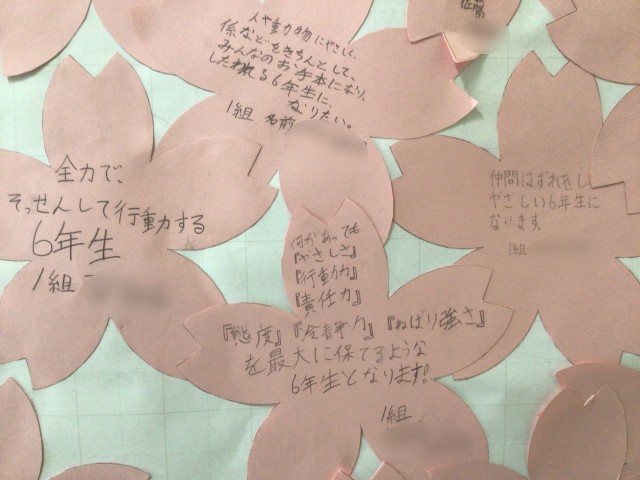 人や動物にやさしく、
係などをきちんとして、
みんなのお手本になり、
したわれる6年生に、
なりたい。
1組 名前
佐藤
全力で、
そっせんして行動する
6年生
1組
仲間はずれをし
やさしい6年生に
なります。
1組
何があっても
『やさしさ』
『行動力』
『責任力』
『態度』『全部力』『ねばり強さ』
を最大に保てるような
6年生となります!
1組